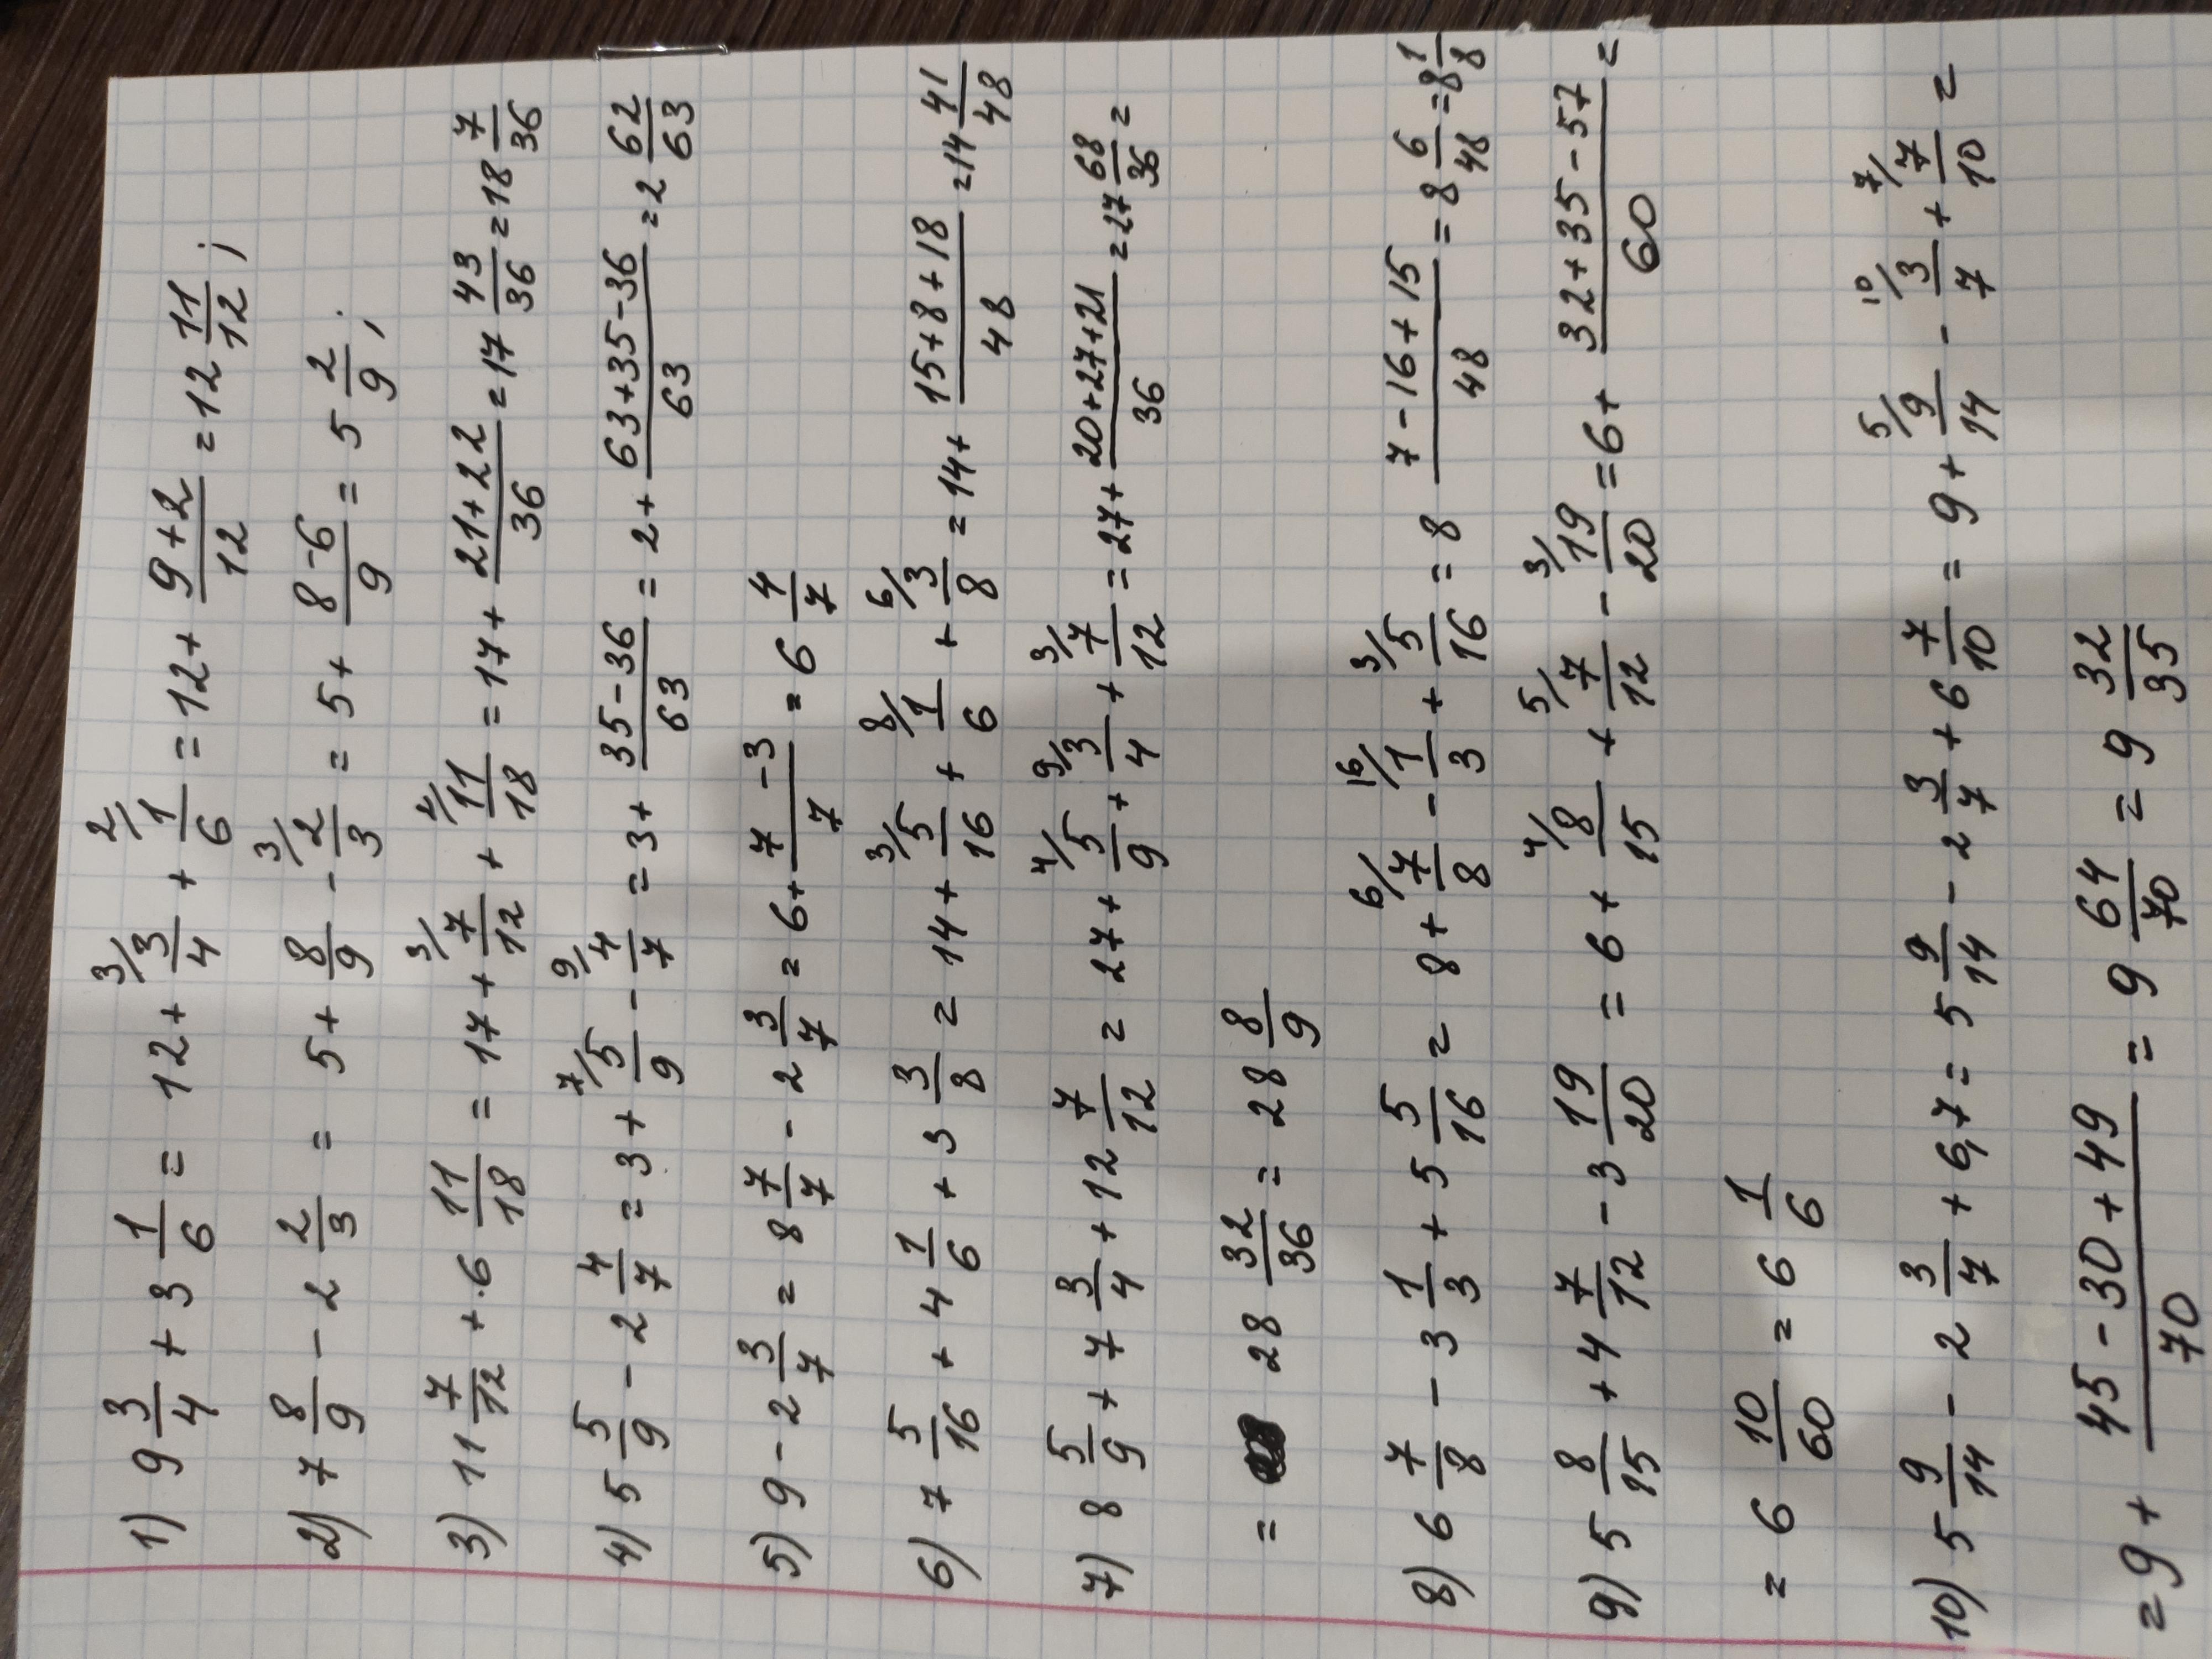 1) 9 3/4 + 3 1/6 = 12 + 3/ 3/4 + 2/ 1/6 = 12 + (9+2)/12 = 12 11/12 ;
2) 7 8/9 - 2 2/3 = 5 + 8/9 - 3/ 2/3 = 5 + (8-6)/9 = 5 2/9 ;
3) 11 7/12 + 6 11/18 = 17 + 3/ 7/12 + 2/ 11/18 = 17 + (21+22)/36 = 17 43/36 = 18 7/36
4) 5 5/9 - 2 4/7 = 3 + 7/ 5/9 - 9/ 4/7 = 3 + (35-36)/63 = 2 + (63+35-36)/63 = 2 62/63
5) 9 - 2 3/7 = 8 7/7 - 2 3/7 = 6 + (7-3)/7 = 6 4/7
6) 7 5/16 + 4 1/6 + 3 3/8 = 14 + 3/ 5/16 + 8/ 1/6 + 6/ 3/8 = 14 + (15+8+18)/48 = 14 41/48
7) 8 5/9 + 7 3/4 + 12 7/12 = 27 + 4/ 5/9 + 9/ 3/4 + 3/ 7/12 = 27 + (20+27+21)/36 = 27 68/36 =
= 28 32/36 = 28 8/9
8) 6 7/8 - 3 1/3 + 5 5/16 = 8 + 6/ 7/8 - 16/ 1/3 + 3/ 5/16 = 8 (7-16+15)/48 = 8 6/48 = 8 1/8
9) 5 8/15 + 4 7/12 - 3 19/20 = 6 + 4/ 8/15 + 5/ 7/12 - 3/ 19/20 = 6 + (32+35-57)/60 =
= 6 10/60 = 6 1/6
10) 5 9/14 - 2 3/7 + 6,7 = 5 9/14 - 2 3/7 + 6 7/10 = 9 + 5/ 9/14 - 10/ 3/7 + 7/ 7/10 =
= 9 + (45-30+49)/70 = 9 64/70 = 9 32/35